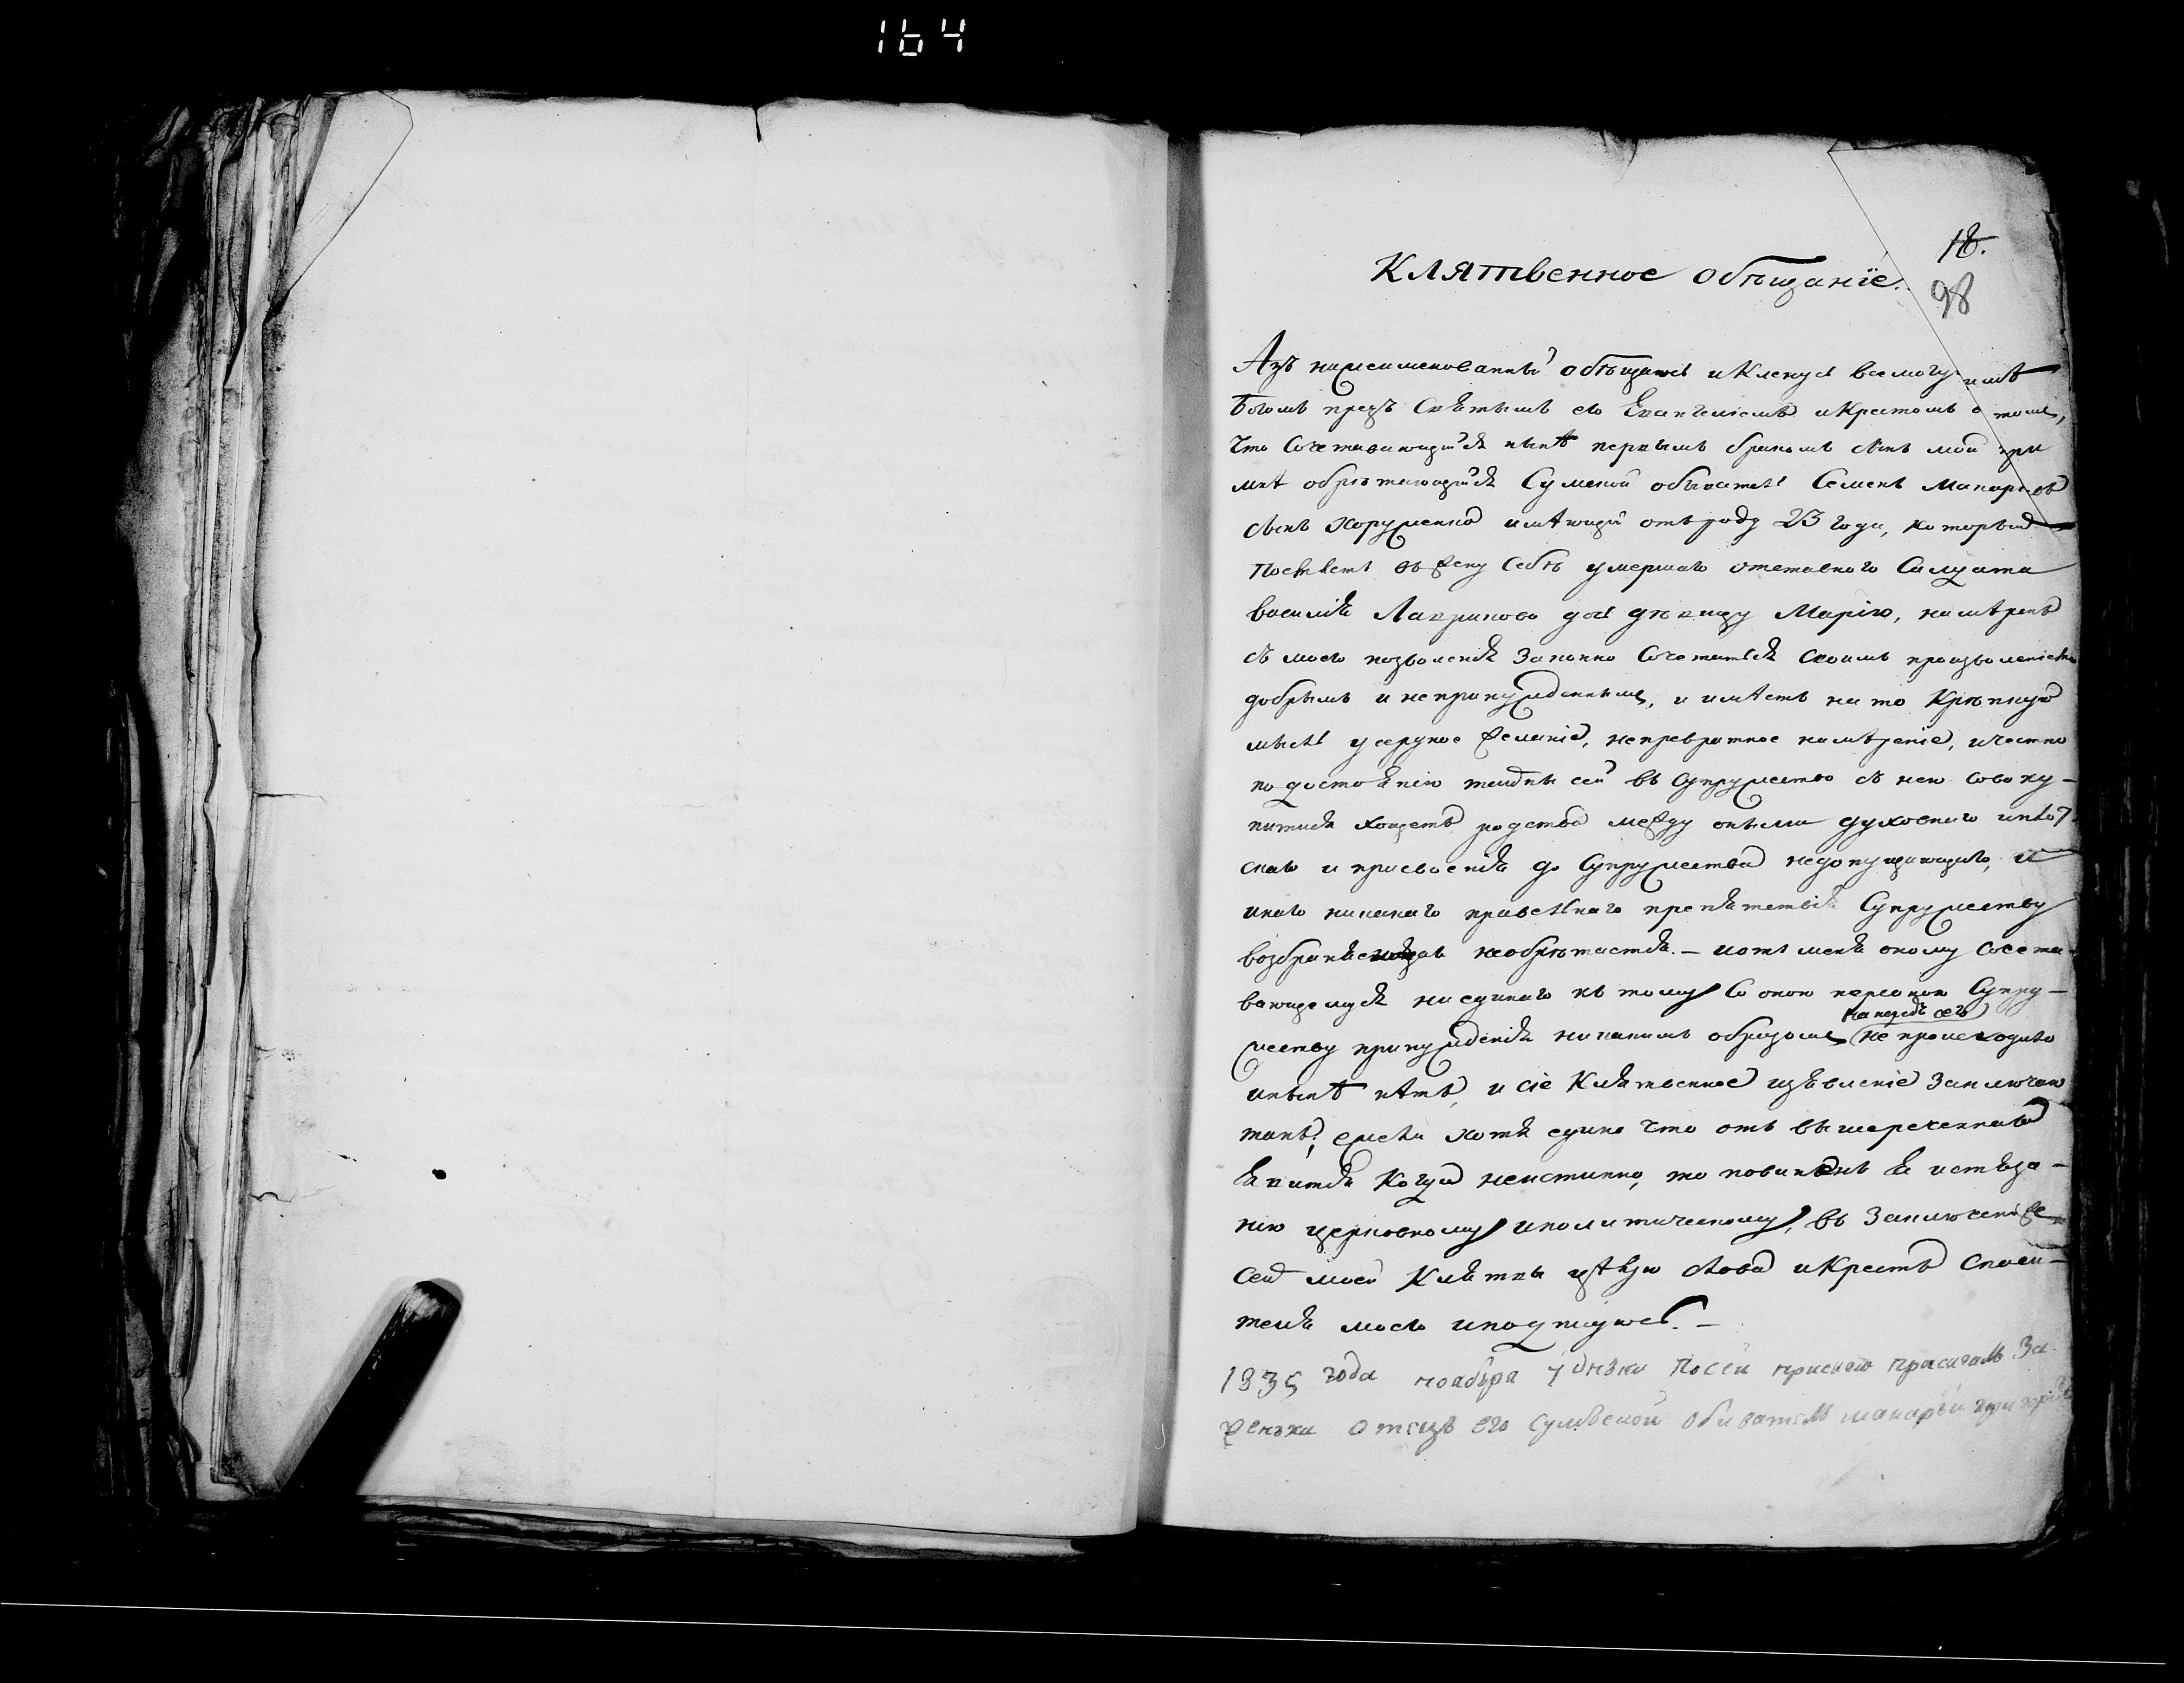 164
18.
Клятвенное обѣщаніе.
98
Азъ нижеименованный обѣщаюсь и кленусь всемогущимъ
Богомъ предъ Святымъ его Евангеліемъ и крестомъ о томъ,
что сочетавающійся нынѣ первымъ бракомъ сынъ мой при
мнѣ обрѣтающійся Сумской обыватель Семенъ Макаріевъ
сынъ Хоруженко имѣющій отъ роду 23 года, который
посягаетъ въ жену себѣ умершаго отставного Салдата
Василія Лавринова дочь дѣвицу Марію, намѣренъ
съ моего позволенія законно сочетатися своимъ произволеніемъ
добрымъ и непринужденнымъ, и имѣетъ на то крѣпкую
мысль усердное желаніе, непревратное намѣреніе, и честно
по достоянію тайны сей въ супружество съ нею совоку-
питися хощетъ родства между оными духовного и плот-
скаго и присвоенія до супружества недопущающаго, и
инаго никакого правельнаго препятствія супружеству
возбраняющаго необрѣтается. — и отъ меня оному сочета-
вающемуся ни единаго къ тому со оною персоною супру-
жеству принужденія никакимъ образомъ напредъ сего не происходило
и нынѣ нѣтъ, и сіе клятвенное изъявленіе заключаю
такъ: ежели хотя едино что отъ вышереченнаго
явится когда неистинно, то повиненъ я истяза-
нію церковному и политическому, въ заключеніе же
сей моей клятвы цѣлую слова и крестъ спаси-
теля моего и подпишусь. —
1835 года ноября 7 днъко по сей присяге прасягалъ за
женъха отецъ его сумъской обиватель макарьй